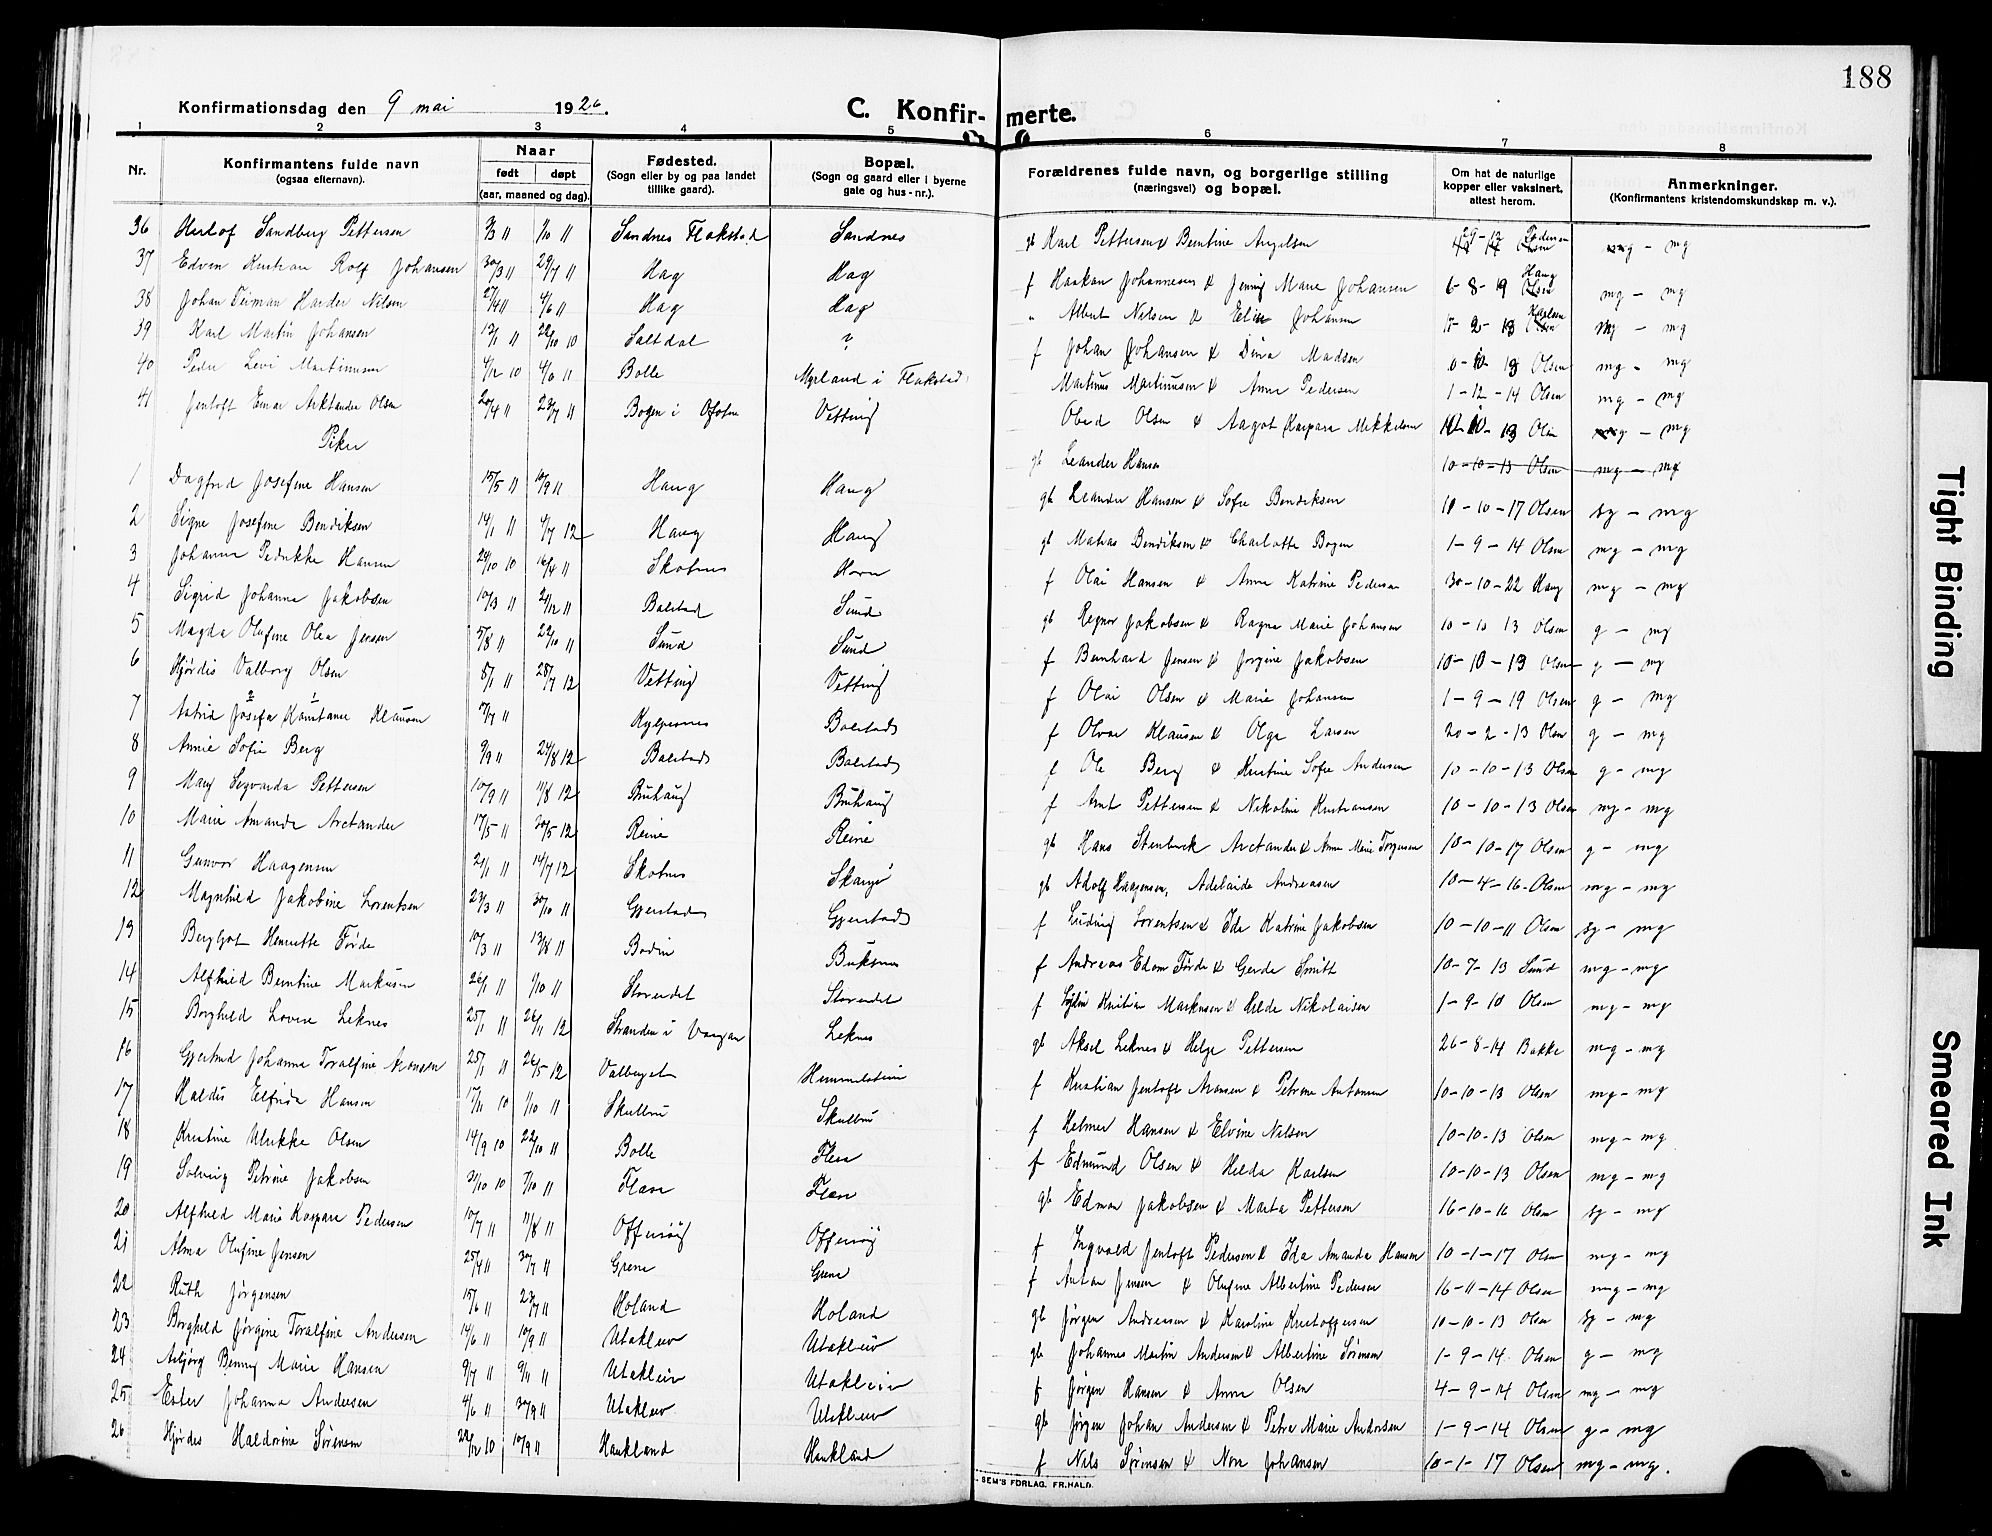 188
Konfirmationsdag den 9 mai 1926.
C. Konfir- merte.
1 2 3 4 5 6 7 8
Nr.
Konfirmantens fulde navn
(ogsaa efternavn).
Naar
født døpt
(aar, maaned og dag).
Fødested.
(Sogn eller by og paa landet
tillike gaard).
Bopæl.
(Sogn og gaard eller i byerne
gate og hus-nr.).
Forældrenes fulde navn, og borgerlige stilling
(næringsvei) og bopæl.
Om hat de naturlige
kopper eller vaksinert,
attest herom.
Anmerkninger.
(Konfirmantens kristendomskundskap m. v.).
36 Sandberg Pettersen 1/10 11 Sandnes Flakstad Sandnes gb Karl Pettersen & Berntine Angelsen mg - mg
37 Edvin Kristian Rolf Johansen 30/3 11 29/7 11 Hag Hag f Haakon Johannesen & Jenny Marie Johansen 6-8-19 Haug mg - mg
38 Johan Harder Nilsen 27/4 11 4/6 11 Hag Hag " Albert Nilsen & Johansen Karlsen mg - mg
39 Karl Martin Johansen 13/1 11 22/10 10 Saltdal ? f Johan Johansen & Dina Madsen Olsen mg - mg
40 Peder Levi Martinusen 4/12 10 4/6 11 Bolle Myrland i Flakstad Martinus Martinusen & Anna Pedersen 1-12-14 Olsen mg - mg
41 Jentoft Einar Arktander Olsen 20/4 11 23/7 11 Bogen i Ofoten Vetting Obed Olsen & Aagot Kaspara Mikkelsen Olsen mg - mg
Piker
gb Leander Hansen 10-10-13 Olsen mg - mg
1 Dagfrid Josefine Hansen 15/5 11 10/9 11 Haug Haug gb Leander Hansen & Sofie Bendiksen 10-10-17 Olsen sg - mg
2 Signe Josefine Bendiksen 14/1 11 4/7 12 Haug Haug gb Matias Bendiksen & Charlotte Bogen 1-9-14 Olsen mg - mg
3 Johanna Fedrikke Hansen 24/10 10 16/4 11 Skotnes Horn f Olai Hansen & Anna Katrine Pedersen 30-10-22 Haug mg - mg
4 Sigrid Johanna Jakobsen 10/3 11 Balstad Sund gb Regnor Jakobsen & Ragna Marie Johansen 10-10 13 Olsen g - mg
5 Magda Olufine Olea Jensen 5/8 11 22/10 11 Sund Sund f Bernhard Jensen & Jørgine Jakobsen 10-10-13 Olsen g - mg
6 Hjørdis Valborg Olsen 8/1 11 28/7 12 Vetting Vetting f Olai Olsen & Marie Johansen 1-9-19 Olsen g - mg
7 Astrid Josefa Konstanse Klausen 11 Balstad f Olvar Klausen & Olga Larsen 20-2-13 Olsen g - mg
8 Annie Sofie Berg 9/9 11 24/8 12 Balstad Balstad f Ole Berg & Kristine Sofie Andersen 10-10-13 Olsen g - mg
9 Mary Segvarda Pettersen 10/9 11 11/8 12 Bruhaug Bruhaug f Arnt Pettersen & Nikoline Kristiansen 10-10-13 Olsen mg - mg
10 Marie Amanda Arctander 17/5 11 20/5 12 Reine Reine gb Hans Stenbuck Arctander & Anna Marie Torgersen 10-10-17 Olsen g - mg
11 Gunvor Haagensen 21/1 11 14/7 12 Skotnes gb Adolf Haagensen, Adelaide Andreasen 10-4-16 Olsen mg - mg
12 Magnhild Jakobine Lorentsen 23/3 11 30/10 11 Gjerstad Gjerstad f Ludvig Lorentsen & Ida Katrine Jakobsen 10-10-11 Olsen sg - mg
13 Bergljot Henriette Førde 10/3 11 13/8 11 Bodin Buksnes f Andreas Edom Førde & Gerda Smitt 10-7-13 Sund mg - mg
14 Alfhild Berntine Markusen 26/1 11 1/10 11 Storeidet Storeidet f Kristian Markusen & Helde Nikolaisen 1-9-10 Olsen mg - mg
15 Borghild Lovise Leknes 25/1 11 26/11 12 Stranden i Vaagan Leknes gb Aksel Leknes & Helga Pettersen 26-8-14 Bakke mg - mg
16 Gjertrud Johanna Toralfine Aronsen 25/1 11 26/5 12 Valberget Himmelstein f Kristian Jentoft Aronsen & Petrine Antonsen 10-10-13 Olsen mg - mg
17 Haldis Elfrida Hansen 17/11 10 1/10 11 Skulbru Skulbru f Helmer Hansen & Elvine Nilsen 10-10-13 Olsen mg - mg
18 Kristine Ulrikke Olsen 14/9 10 22/10 11 Bolle Flæa f Edmund Olsen & Helda Karlsen 10-10-13 Olsen mg - mg
19 Solveig Petrine Jakobsen 31/10 10 7/10 11 gb Edvar Jakobsen & Marta Pettersen 16-10-16 Olsen sg - mg
20 Alfhild Marie Kaspara Pedersen 10/7 11 11/8 11 Offersøy Offersøy f Ingvald Jentoft Pedersen & Ida Amanda Hansen 10-1-17 Olsen mg - mg
21 Alma Olufine Jensen 25/4 11 30/7 11 Grene Grene f Anton Jensen & Olufine Albertine Pedersen 16-11-14 Olsen mg - mg
22 Ruth Jørgensen 15/6 11 23/7 11 Holand Holand gb Jørgen Andreassen & Karoline Kristoffersen 10-10-13 Olsen sg - mg
23 Borghild Jørgine Toralfine Andersen 14/6 11 10/9 11 Utakleiv Utakleiv gb Johannes Martin Andersen & Albertine Sørensen 1-9-14 Olsen g - mg
24 Asbjørg Benny Marie Hansen 9/7 11 9/11 11 Utakleiv Utakleiv f Jørgen Hansen & Anna Olsen 4-9-14 Olsen mg - mg
25 Ester Johanna Andersen 4/6 11 30/9 11 Utakleiv Utakleiv gb Jørgen Johan Andersen & Petra Marie Andersen 1-9-14 Olsen g - mg
26 Hjørdis Haldorine Sørensen 22/12 10 10/9 11 Haukland Haukland f Nils Sørensen & Nora Johansen 10-1-17 Olsen mg - mg.
SEM'S FORLAG. FR.HALD.
Tight Binding
Smeared Ink